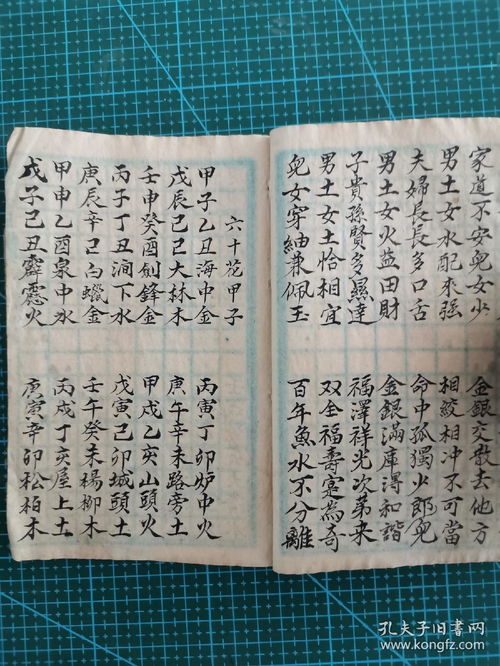 家道不安兒女少 金銀交散去他方
男土女水配不强 相絞相冲不可當
夫婦長長多口舌 命中孤獨少郎兒
男土女火益田財 金銀滿庫得和諧
子貴孫賢多顯達 福澤祥光次第来
男土女土恰相宜 双全福壽寔為奇
兒女穿紬兼佩玉 百年魚水不分離
六十花甲子
甲子乙丑海中金 丙寅丁卯炉中火
戊辰己巳大林木 庚午辛未路旁土
壬申癸酉劍鋒金 甲戌乙亥山頭火
丙子丁丑澗下水 戊寅己卯城頭土
庚辰辛巳白蠟金 壬午癸未楊柳木
甲申乙酉泉中水 丙戌丁亥屋上土
戊子己丑霹靂火 庚寅辛卯松柏木
孔夫子旧書网
www.kongfz.com